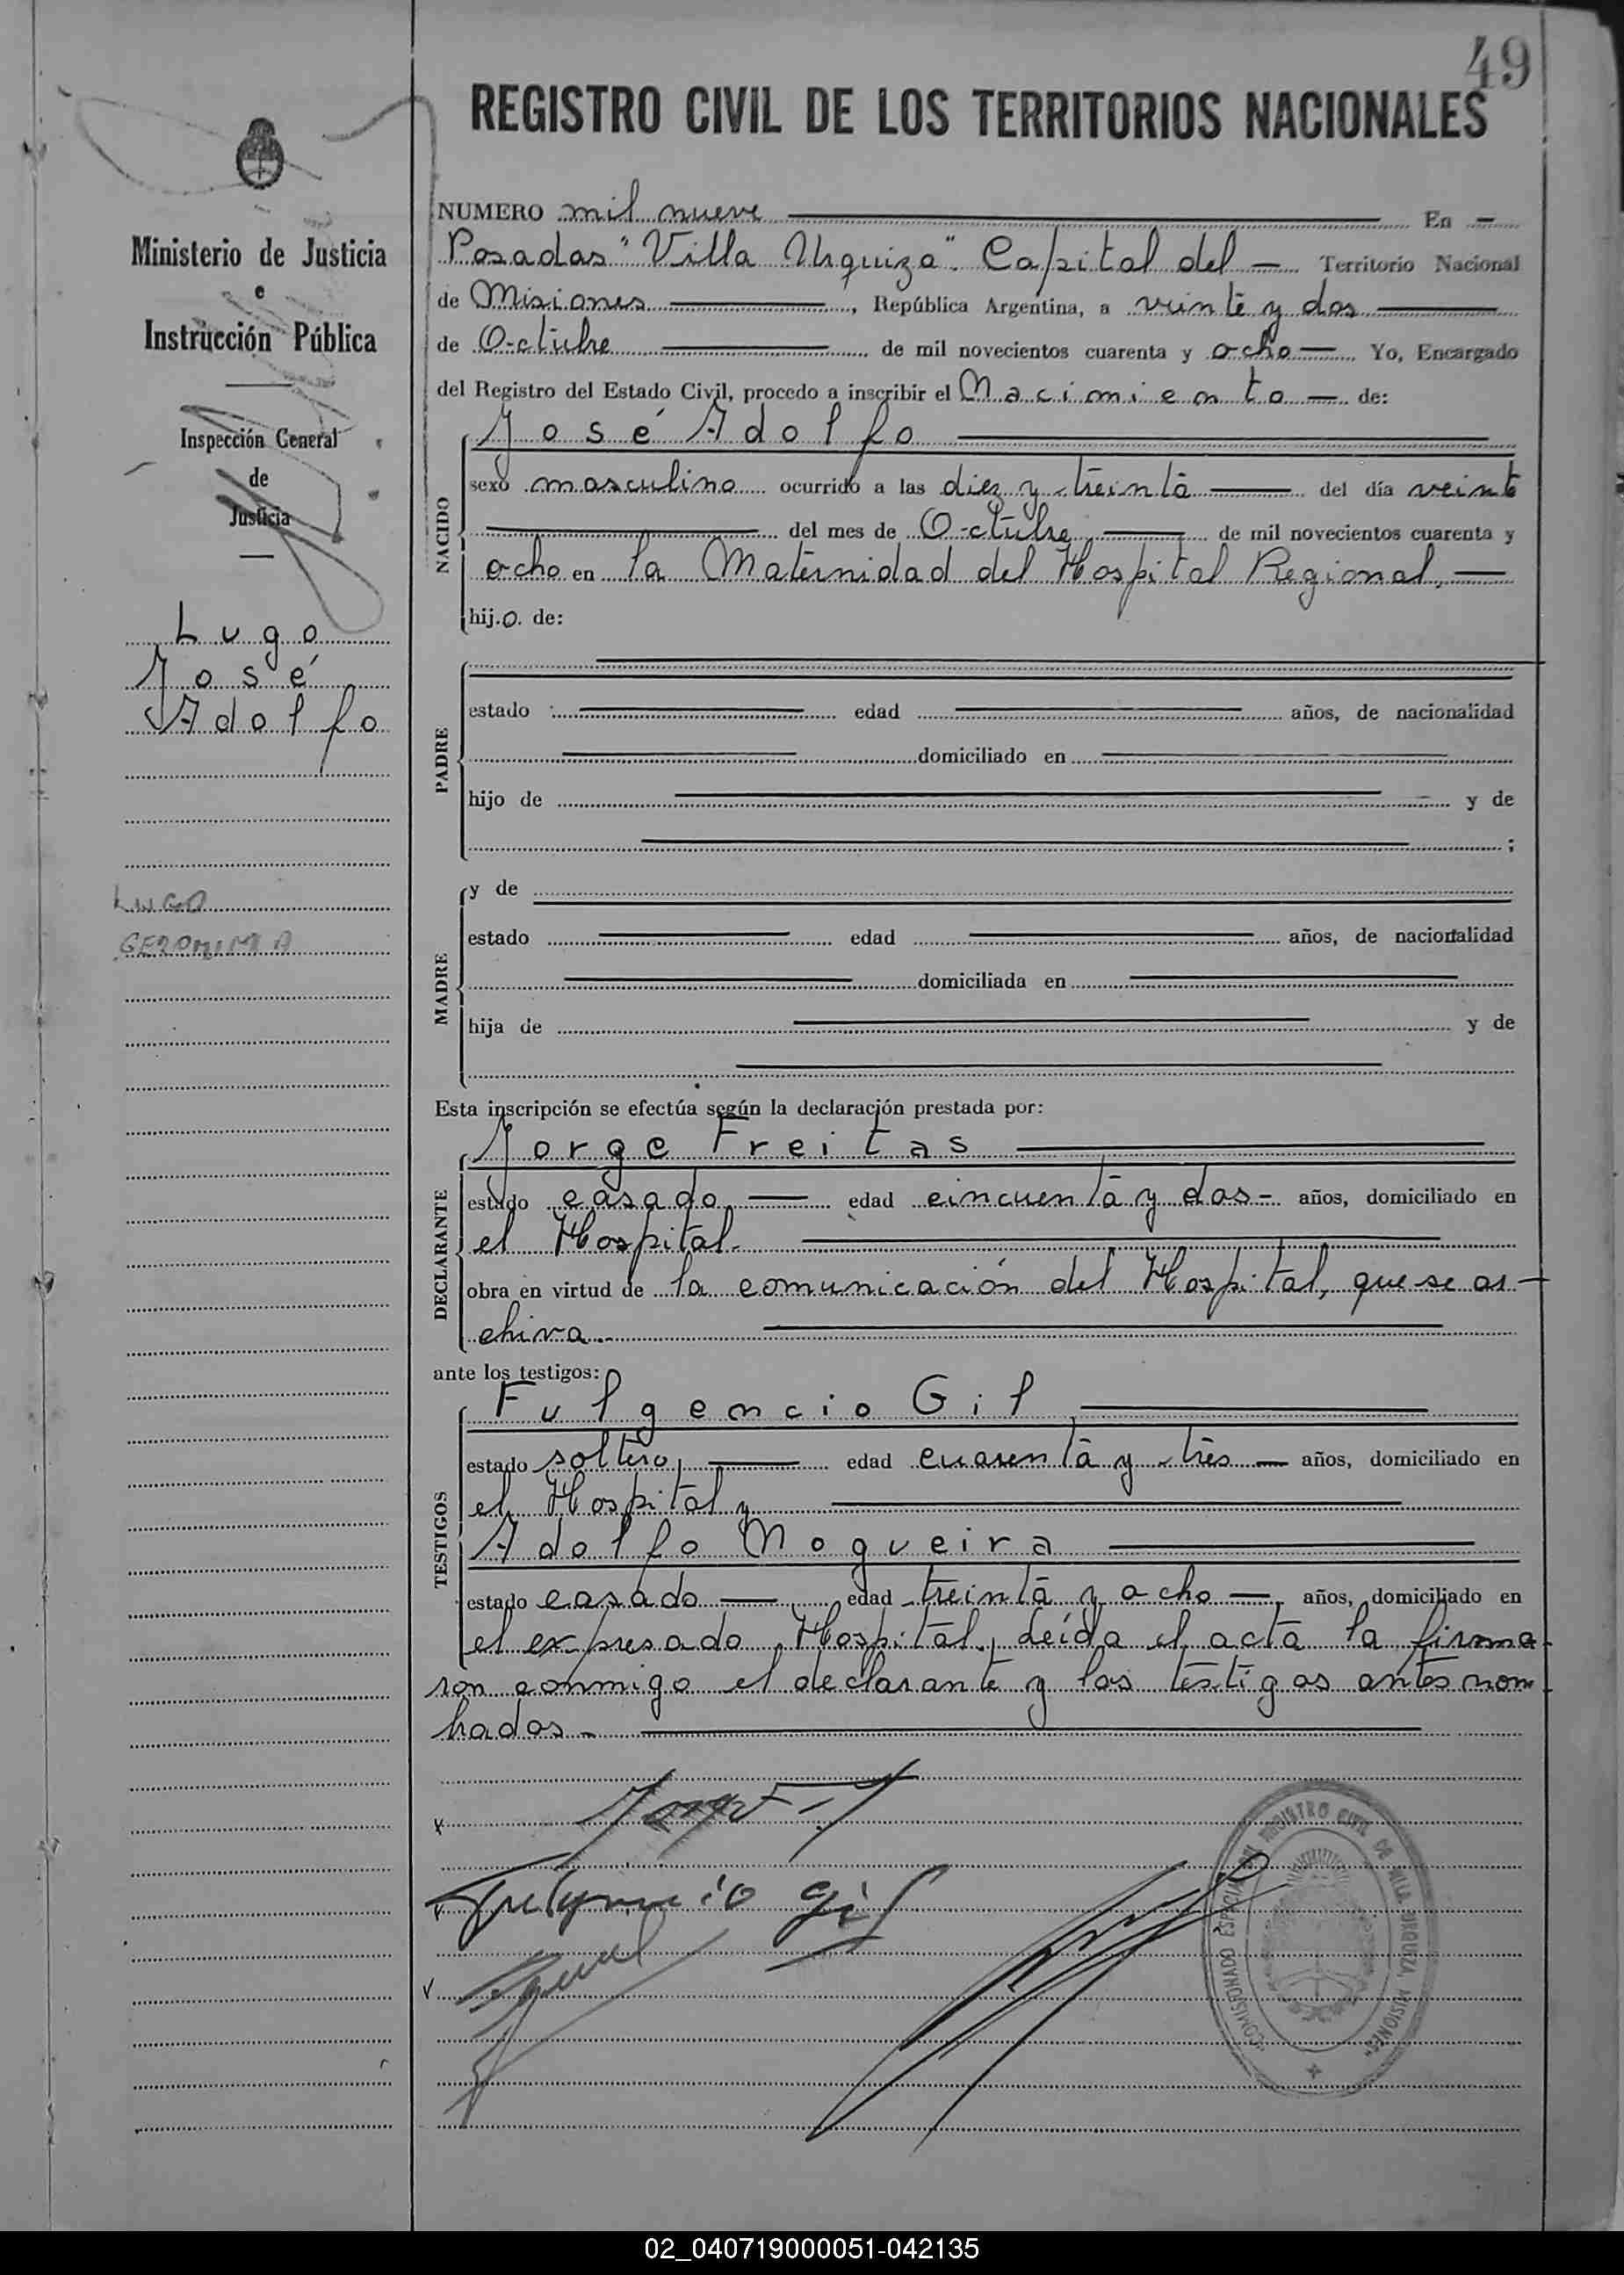 49
REGISTRO CIVIL DE LOS TERRITORIOS NACIONALES
Ministerio de Justicia
e
Instrucción Pública
Inspección General
de
Justicia
Lugo
José
Adolfo
LUGO
GERONIMA
NUMERO mil nueve En
Posadas "Villa Urquiza". Capital del Territorio Nacional
de Misiones, República Argentina, a veinte y dos
de Octubre de mil novecientos cuarenta y ocho Yo, Encargado
del Registro del Estado Civil, procedo a inscribir el Nacimiento de:
José Adolfo
NACIDO
sexo masculino ocurrido a las diez y treinta del día veinte
del mes de Octubre de mil novecientos cuarenta y
ocho en la Maternidad del Hospital Regional,
hijo de:
PADRE
estado edad años, de nacionalidad
domiciliado en
hijo de y de
;
MADRE
y de
estado edad años, de nacionalidad
domiciliada en
hija de y de
Esta inscripción se efectúa según la declaración prestada por:
Jorge Freitas
DECLARANTE
estado casado edad cincuenta y dos años, domiciliado en
el Hospital.
obra en virtud de la comunicación del Hospital, que se ar-
chiva.
ante los testigos:
Fulgencio Gil
TESTIGOS
estado soltero, edad cuarenta y tres años, domiciliado en
el Hospital y
Adolfo Nogueira
estado casado edad treinta y ocho años, domiciliado en
el expresado Hospital. Leída el acta la firma-
ron conmigo el declarante y los testigos antes nom-
brados.
Fulgencio Gil
COMISIONADO ESPECIAL DEL REGISTRO CIVIL DE VILLA URQUIZA, MISIONES
02_040719000051-042135